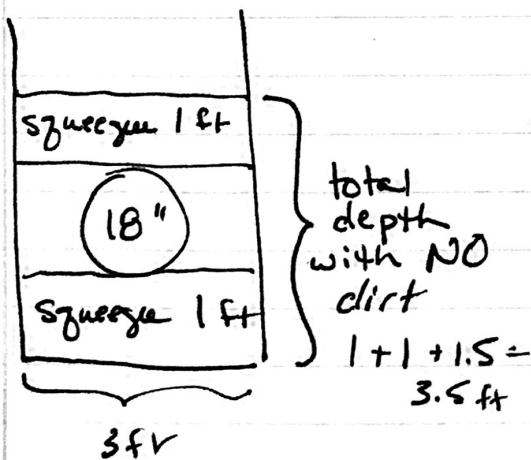 squeegee 1 ft
18"
squeegee 1 ft
total
depth
with NO
dirt
1 + 1 + 1.5 =
3.5 ft
3 ft